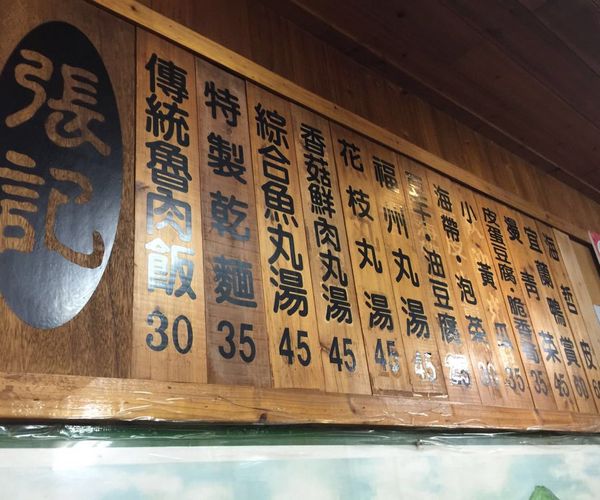 張記
傳統魯肉飯 30
特製乾麵 35
綜合魚丸湯 45
香菇鮮肉丸湯 45
花枝丸湯 45
福州丸湯 45
豆干·油豆腐
海帶·泡菜
小黃瓜 30
皮蛋豆腐 脆香 35
燙青菜 35
宜蘭鴨賞
海哲皮